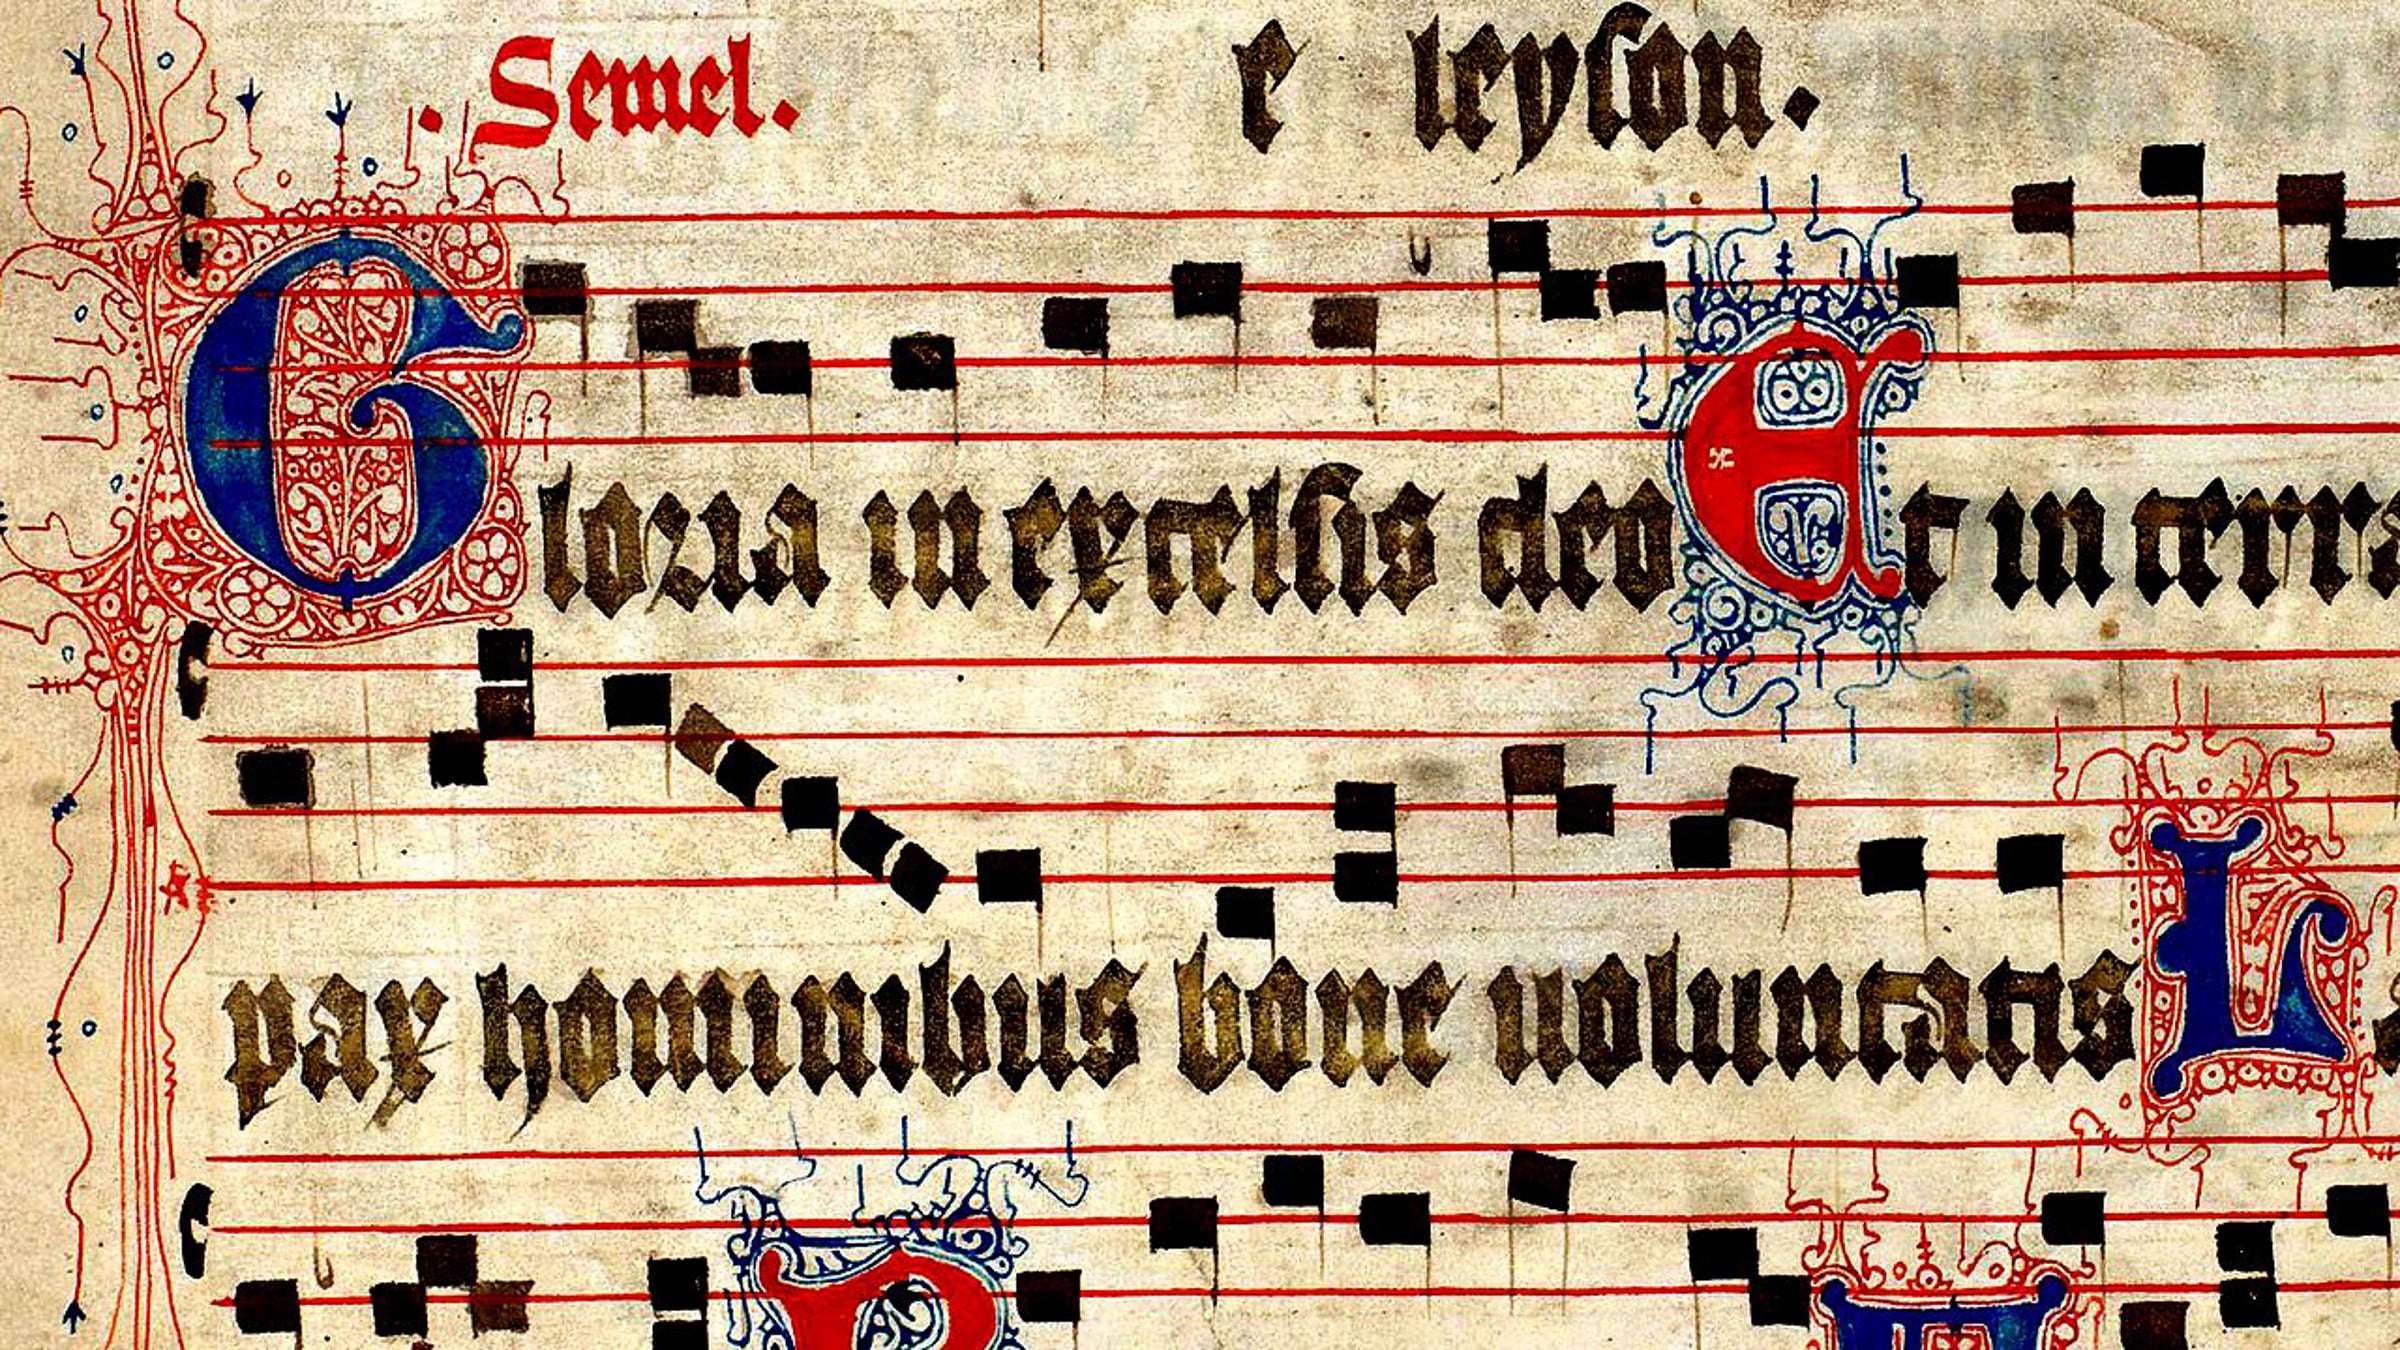 . Semel. e leyson.
Gloria in excelsis deo Et in terra
pax hominibus bone uoluntatis L